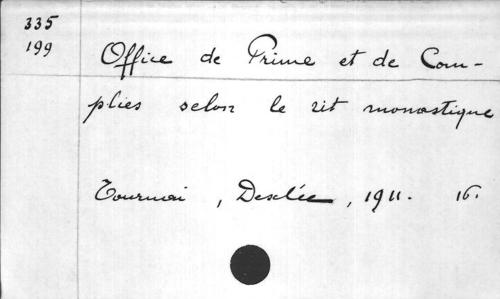 335
199
Office de Prime et de Com-
plies selon le rit monastique
Tournai, Desclée, 1911. 16.